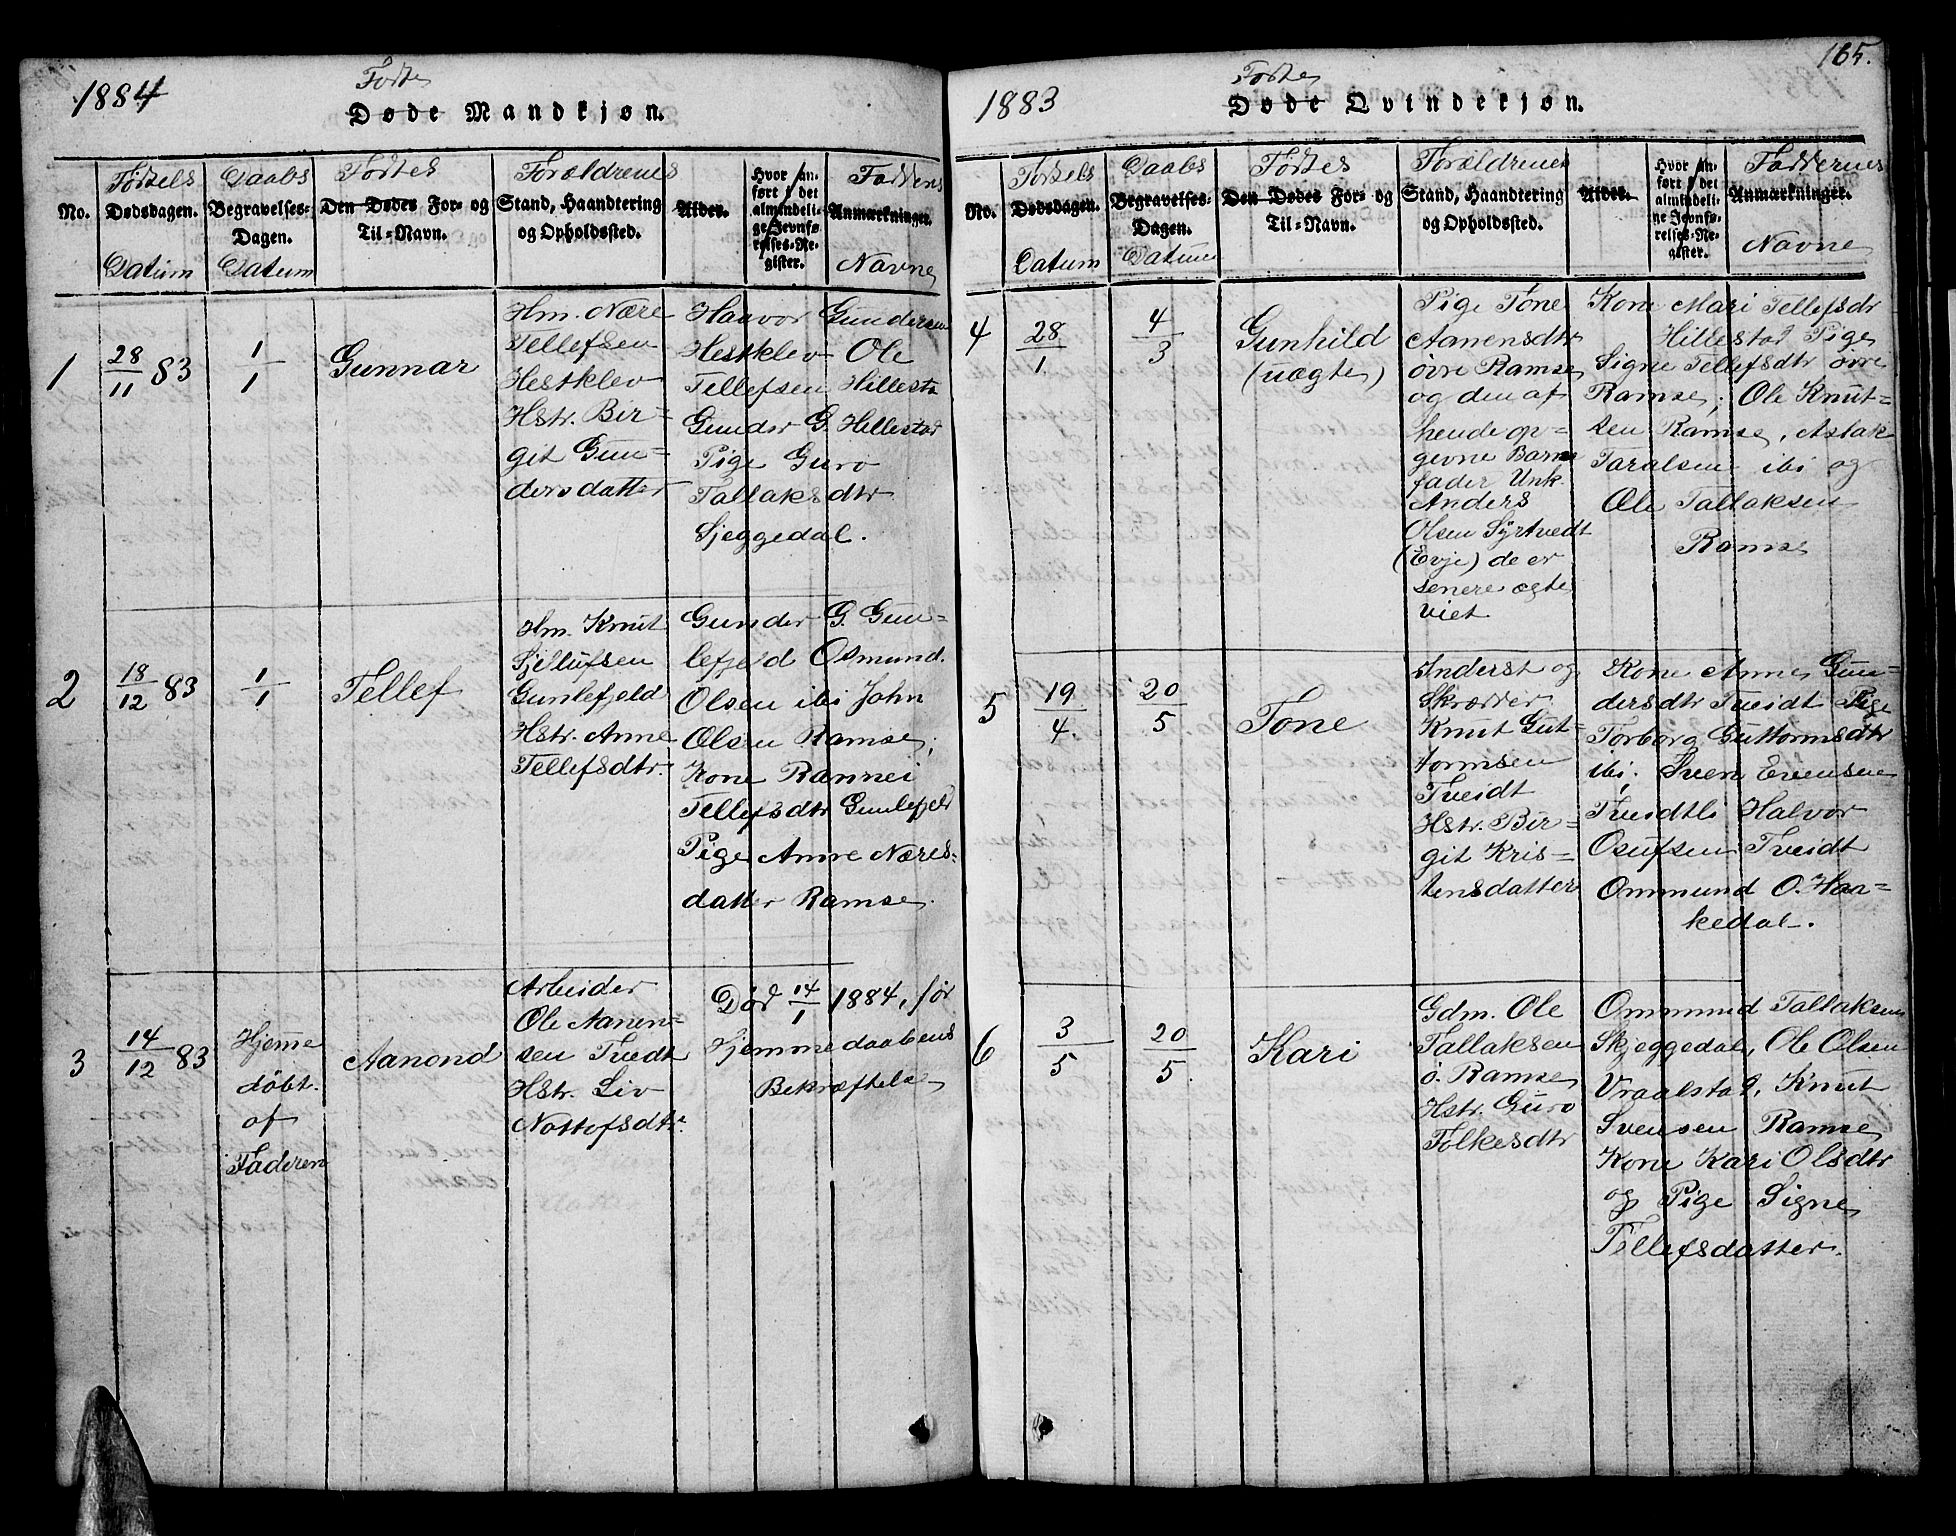 1884
Fødte
Døde Mandkjøn.
No.
Fødsels
Dødsdagen.
Datum
Daabs
Begravelses-
Dagen.
Datum
Fødtes
Den Dødes For- og
Til-Navn.
Forældrenes
Stand, Haandtering
og Opholdssted.
Alder.
Hvor an-
ført i det
almindeli-
ge Jevnfø-
relses-Re-
gister.
Faddernes
Anmærkninger.
Navne
1
28/11 83
1/1
Gunnar
Hm. Nære
Tellefsen
Hestklev
Hstr. Bir-
git Gun-
dersdatter
Haavor Gundersen
Hestklev Ole
Tellefsen Hillesta
Gunder G. Hillestad
Pige Guro
Tallaksdtr
Sjeggedal.
2
18/12 83
1/1
Tellef
Hm. Knut
Gjellufsen
Gunlefjeld
Hstr. Anne
Tellefsdtr.
Gunder G. Gun-
lefjeld Osmund
Olsen ibi John
Olsen Ramse;
Kone Rannei
Tellefsdtr Gunlefjeld
Pige Anne Næres-
datter Ramse.
3
14/12 83
Hjeme
døbt
af
Faderen
Aanond
Arbeider
Ole Aanen-
sen Tvedt
Hstr. Liv
Nottofsdtr.
Død 14/1 1884, før
Hjemmedaabens
Bekræftelse
165.
1883
Fødte
Døde Qvindekjøn.
No.
Fødsels
Dødsdagen.
Datum
Daabs
Begravelses-
Dagen.
Datum
Fødtes
Den Dødes For- og
Til-Navn.
Forældrenes
Stand, Haandtering
og Opholdssted.
Alder.
Hvor an-
ført i det
almindeli-
ge Jevnfø-
relses-Re-
gister.
Faddernes
Anmærkninger.
Navne
4
28/1
4/3
Gunhild
(uægte)
Pige Tone
Aanensdtr
øvre Ramse
og den af
hende op-
gevne Barne
fader Unk.
Anders
Olsen Syrtvedt
(Evje) de er
senere ægte
viet
Kone Mari Tellefsdr
Hillestad Pige
Signe Tellefsdtr øvre
Ramse; Ole Knut-
sen Ramse, Aslak
Taralsen ibi og
Ole Tallaksen
Ramse
5
19/4.
20/5
Tone
Inderst og
Skrædder
Knut Gut-
tormsen
Tveidt
Hstr. Bir-
git Kris-
tensdatter
Kone Anne Gun-
dersdtr Tveidt Pige
Torborg Guttormsdtr
ibi; Sven Evensen
Tveidtli Halvor
Osufsen Tveidt
Ommund O. Haa-
kedal.
6
3/5
20/5.
Kari
Gdm. Ole
Tallaksen
ø. Ramse
Hstr. Guro
Folkesdtr
Ommund Tallaksen
Skjeggedal, Ole Olsen
Vraalstad, Knut
Svensen Ramse
Kone Kari Olsdtr
og Pige Signe
Tellefsdatter.